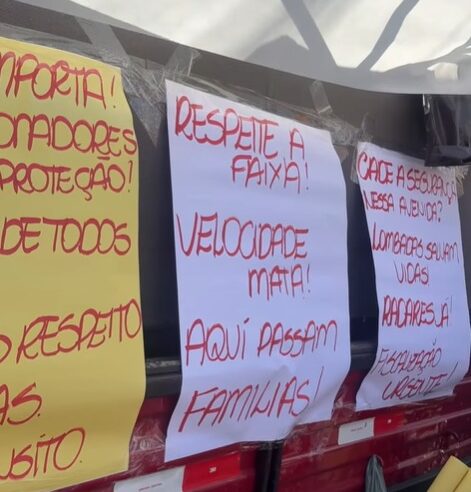 MPORTA!
PROTEÇÃO?
DE TODOS
RESPEITO
AS.
RESPEITE A
FAIXA!
VELOCIDADE
MATA!
AQUÍ PASSAM
FAMILIAS!
CADE A SEGURANÇA
NESSA AVENIDA?
LOMBADAS SALVAM
VIDAS!
RADARES JÁ!
FISCALIZAÇÃO
URGENTE!